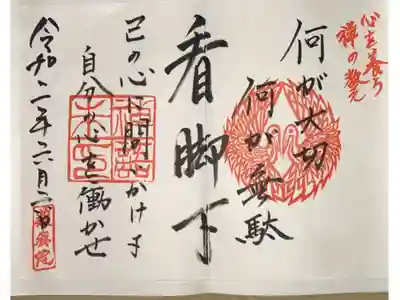 心を養う
禅の教え
何が大切
何が無駄
看脚下
己の心に問いかけ
自分の心を働かせ
令和二年六月